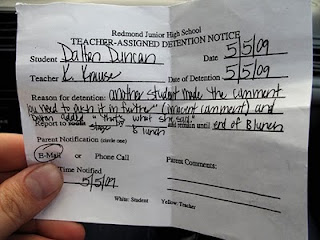 Redmond Junior High School
TEACHER-ASSIGNED DETENTION NOTICE
Student Dalton Duncan Date 5/5/09
Teacher K. Krause Date of Detention 5/5/09
Reason for detention: another student made the comment
you need to push it in further (innocent comment) and
Dalton added "that's what she said."
Report to by B lunch and remain until end of B lunch
Parent Notification (circle one)
E-Mail or Phone Call Parent Comments:
Time Notified
5/5/09
White: Student Yellow: Teacher